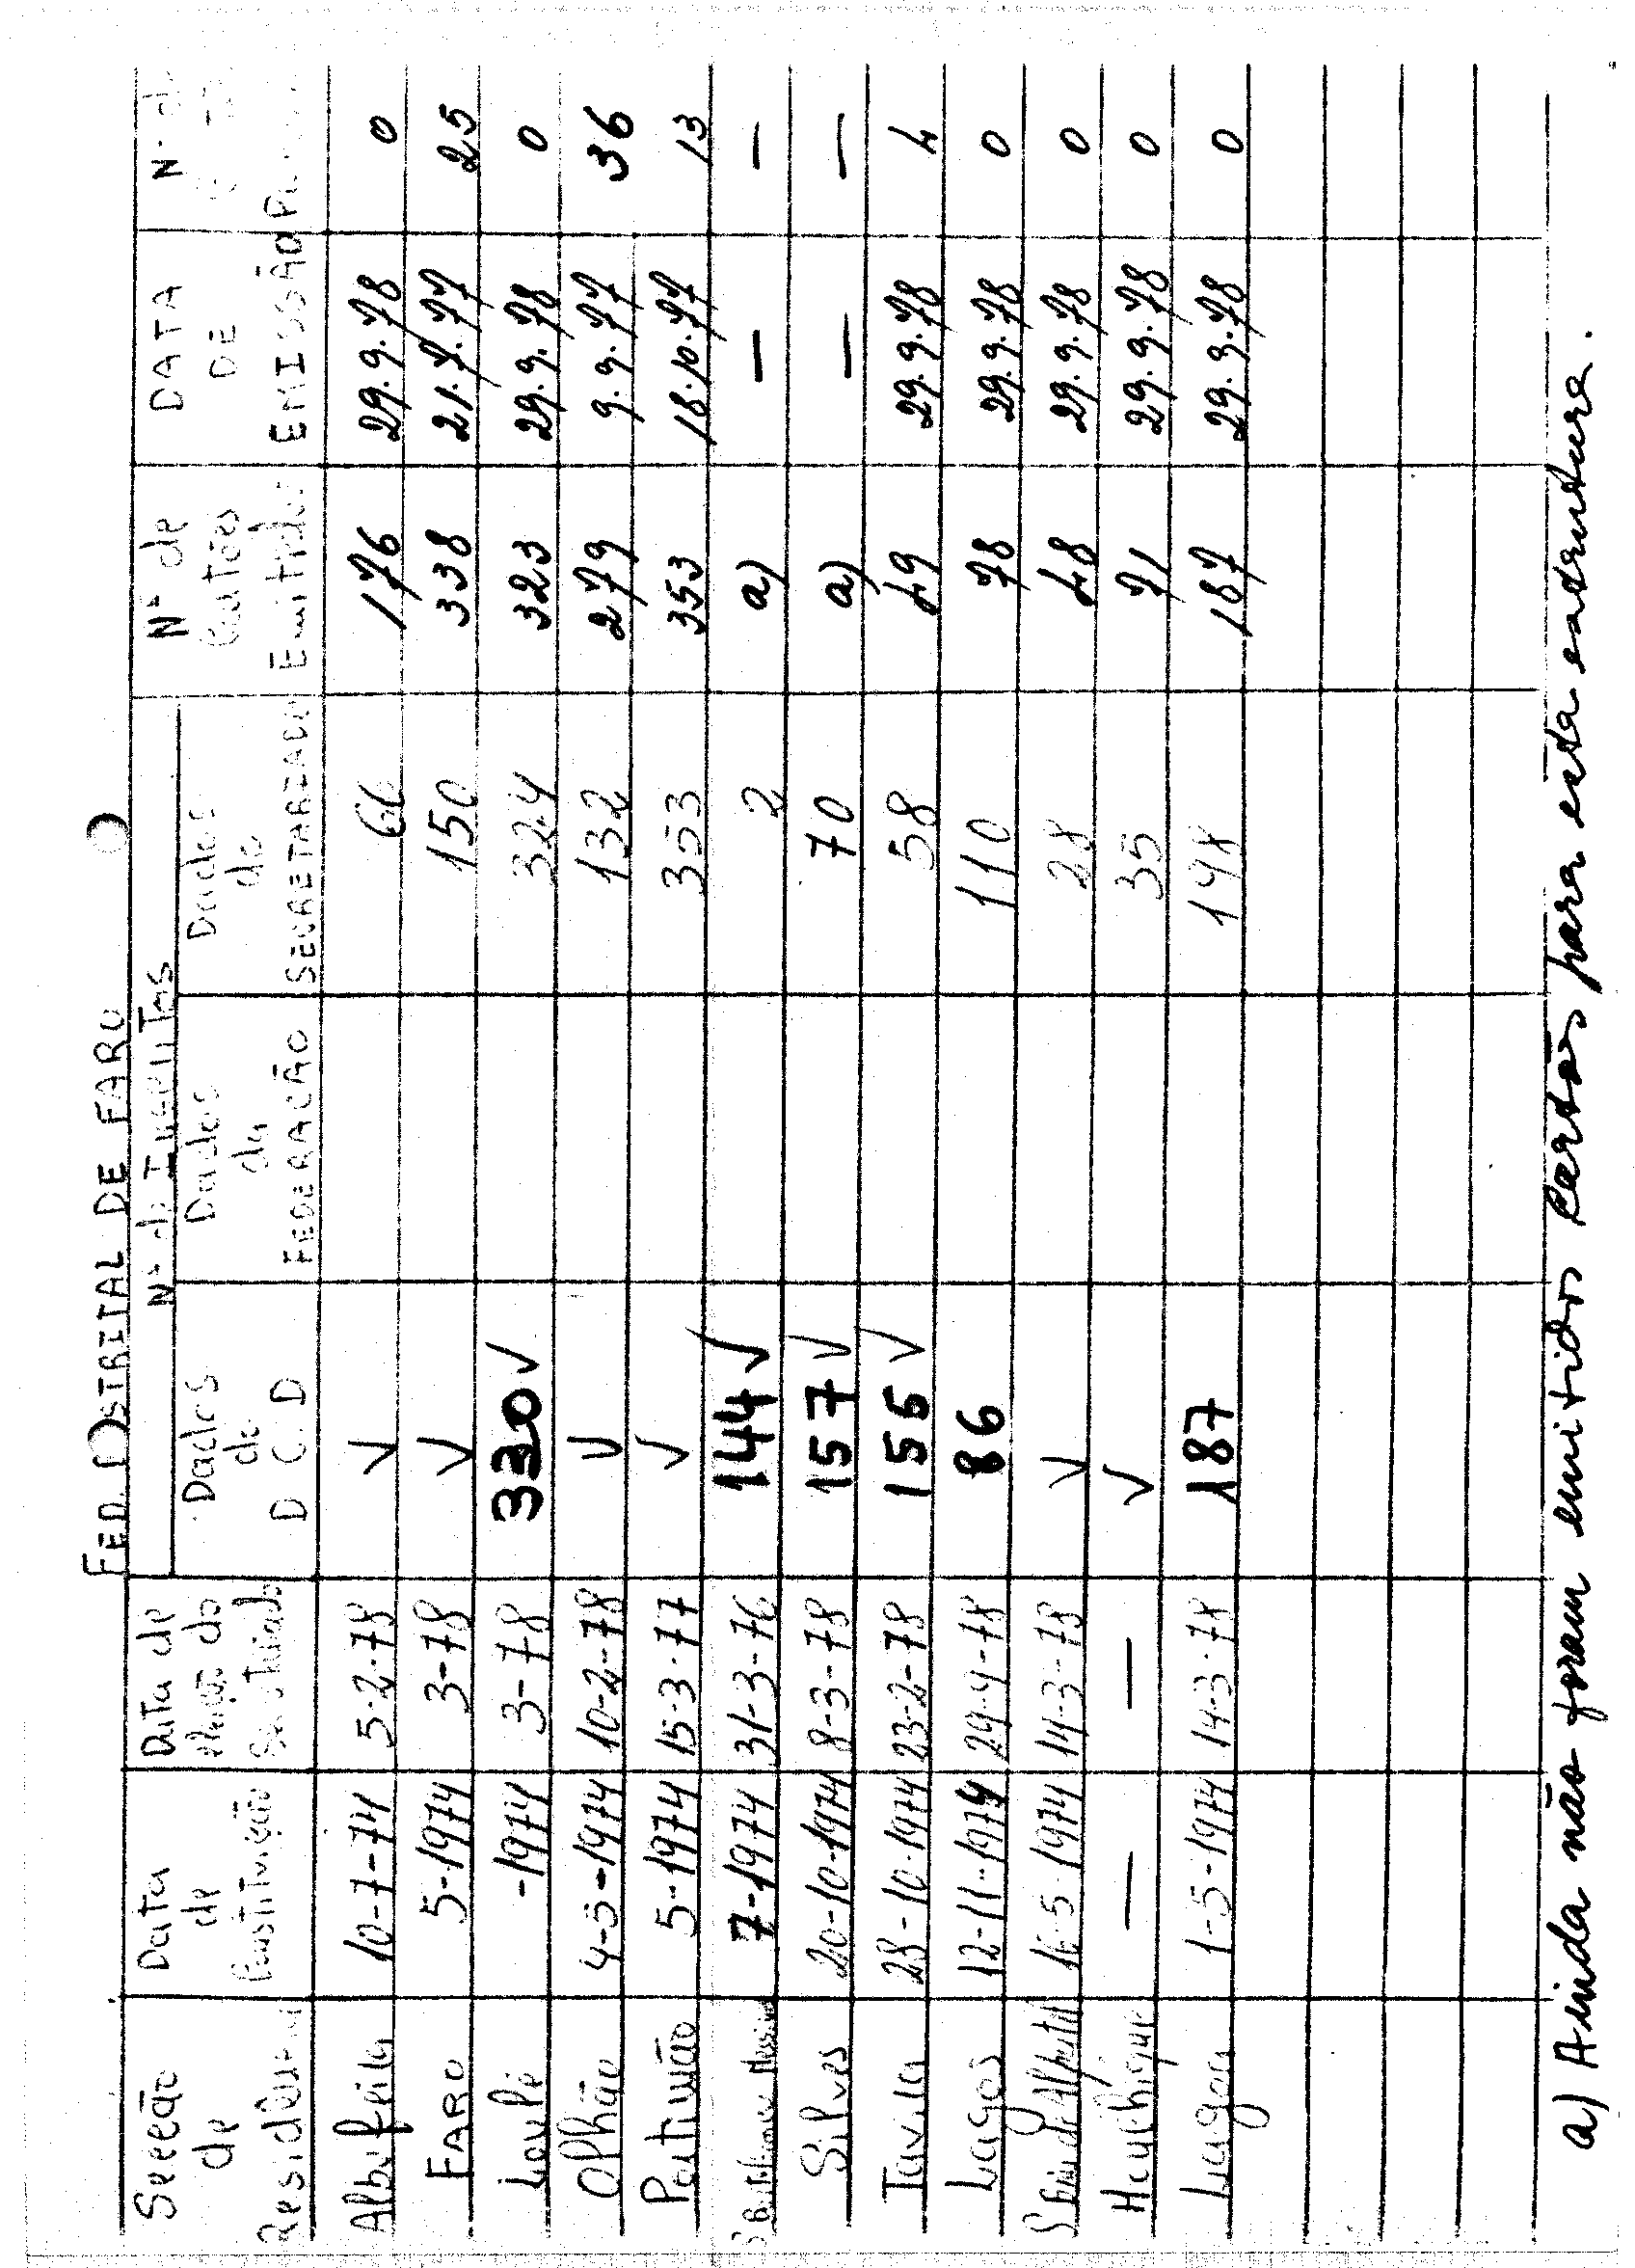 FED. DISTRITAL DE FARO
Nº de Inscritos
Secção de Residência | Data de Constituição | Data de eleição do Secretariado | Dados do D C. D | Dados da FEDERAÇÃO | Dados do SECRETARIADO | Nº de Cartões Emitidos | DATA DE EMISSÃO | Nº de
Albufeira | 10-7-74 | 5-2-78 | √ | | 66 | 176 | 29.9.78 | 0
FARO | 5-1974 | 3-78 | √ | | 150 | 338 | 21.7.77 | 25
Loulé | -1974 | 3-78 | 330 √ | | 324 | 323 | 29.9.78 | 0
Olhão | 4-5-1974 | 10-2-78 | √ | | 132 | 279 | 9.9.77 | 36
Portimão | 5-1974 | 15-3-77 | √ | | 353 | 353 | 18.10.77 | 13
S. B. Messines | 7-1974 | 31-3-76 | 144 √ | | 2 | a) | — | —
Silves | 20-10-1974 | 8-3-78 | 157 √ | | 70 | a) | — | —
Tavira | 28-10-1974 | 23-2-78 | 155 √ | | 58 | 49 | 29.9.78 | 4
Lagos | 12-11-1974 | 29-4-78 | 86 | | 110 | 78 | 29.9.78 | 0
S. Brás de Alportel | 16-5-1974 | 14-3-78 | √ | | 28 | 48 | 29.9.78 | 0
Monchique | — | — | √ | | 35 | 71 | 29.9.78 | 0
Lagoa | 1-5-1974 | 14-3-78 | 187 | | 198 | 187 | 29.9.78 | 0
a) Ainda não foram emitidos Cartões para esta estrutura.